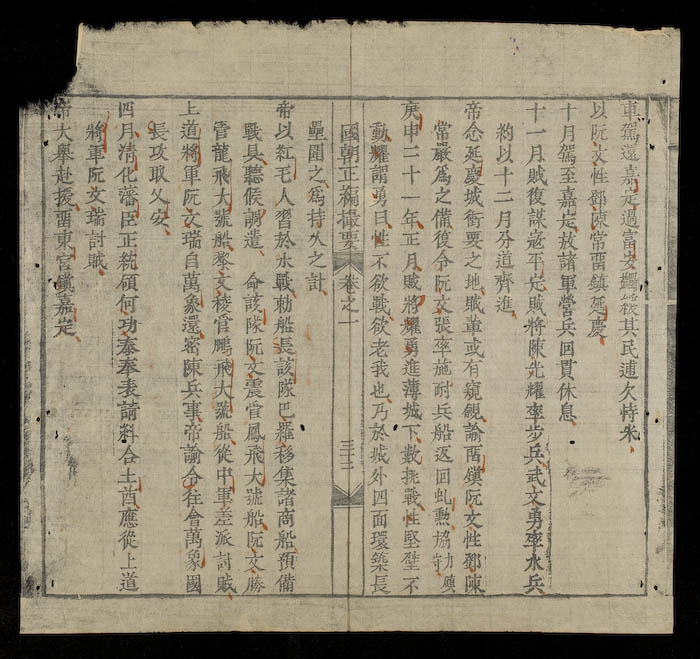 車駕還嘉定過富安蠲緩其民逋欠恃米
以阮文性鄧陳常畱鎮延慶
十月駕至嘉定放諸軍營兵回貫休息
十一月賊復謀寇平定賊將陳光耀率步兵武文勇率水兵
約以十二月分道齊進
帝念延慶城衝要之地賊輩或有窺覦諭畱鎮阮文性鄧陳
常嚴爲之備復令阮文張率施耐兵船返回虬勲協力
庚申二十一年正月賊將耀勇進薄城下數挑戰性堅壁不
動耀謂勇曰性不欲戰欲老我也乃於城外四面環築長
國朝正編撮要 卷之一 三十二
壘圍之爲持久之計
帝以紅毛人習於水戰勅船長該隊巴羅移集諸商船預備
戰具聽候調遣 命該隊阮文震管鳳飛大號船阮文勝
管龍飛大號船黎文稜管鵬飛大號船從中軍差派討賊
上道將軍阮文瑞自萬象還密陳兵事帝諭令往會萬象國
長攻取乂安
四月清化藩臣正統領何功泰奉表請糾合土酋應從上道
將軍阮文瑞討賊
帝大舉赴援畱東宮鎮嘉定